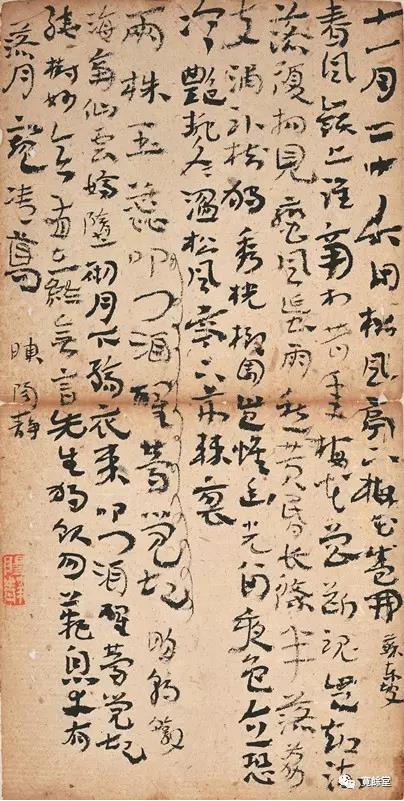 十一月二十六日松風亭下梅花盛開 蘇東坡
春風嶺上淮南村昔年梅花曾斷魂豈知流
落復相見蠻風蜑雨愁黃昏長條半落荔
支浦臥樹獨秀桄榔園豈惟幽光留夜色直恐
冷艷排冬溫松風亭下荊棘裏
兩株玉蕊叩門酒醒夢覺起 明朝暾
海南仙雲嬌墮砌月下縞衣來叩門酒醒夢覺起
繞樹妙意有在終無言先生獨飲勿歎息幸有
落月窺清尊
寬餘堂